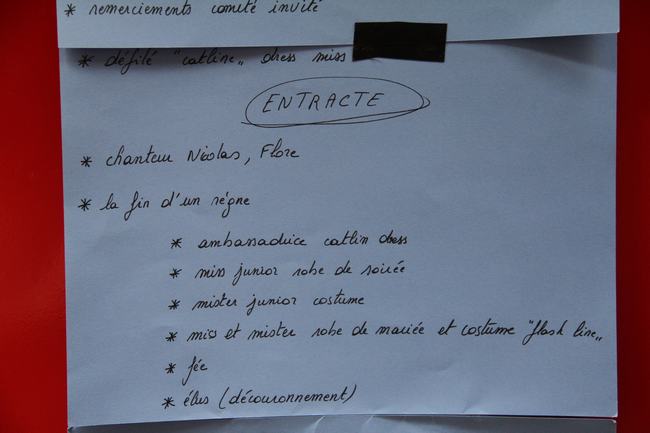 * remerciements comité invité
* défilé "catline" dress miss
ENTRACTE
* chanteur Nicolas, Flore
* la fin d'un règne
* ambassadrice catlin dress
* miss junior robe de soirée
* mister junior costume
* miss et mister robe de mariée et costume "flash line"
* fée
* élus (découronnement)